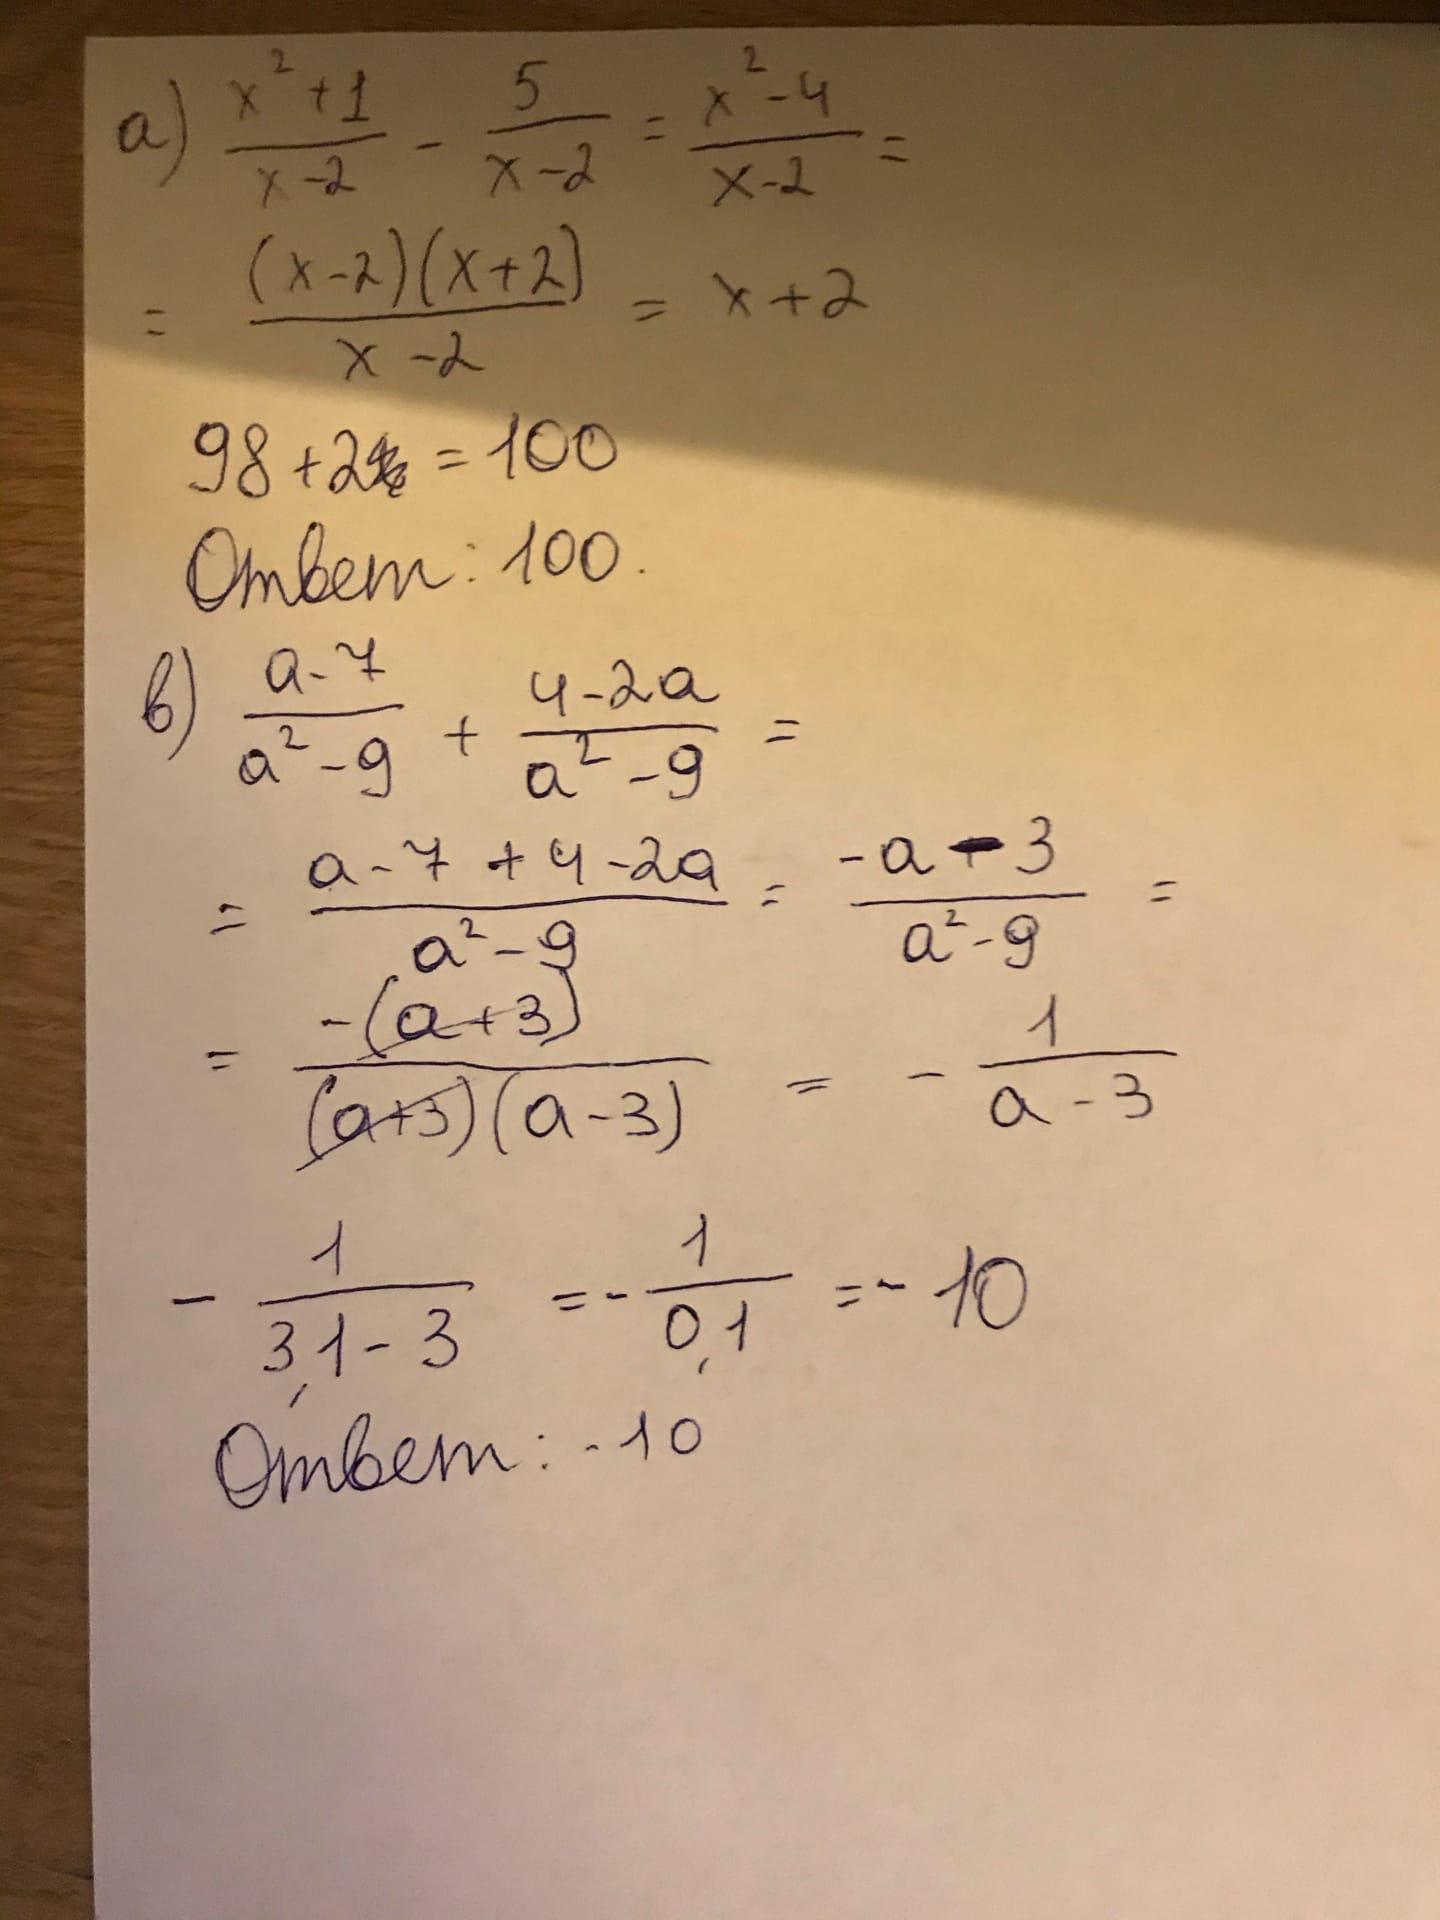 а) (x²+1)/(x-2) - 5/(x-2) = (x²-4)/(x-2) =
= ((x-2)(x+2))/(x-2) = x+2
98+2 = 100
Ответ: 100.
в) (a-7)/(a²-9) + (4-2a)/(a²-9) =
= (a-7+4-2a)/(a²-9) = (-a-3)/(a²-9) =
= (-(a+3))/((a+3)(a-3)) = - 1/(a-3)
- 1/(3,1-3) = - 1/(0,1) = - 10
Ответ: -10